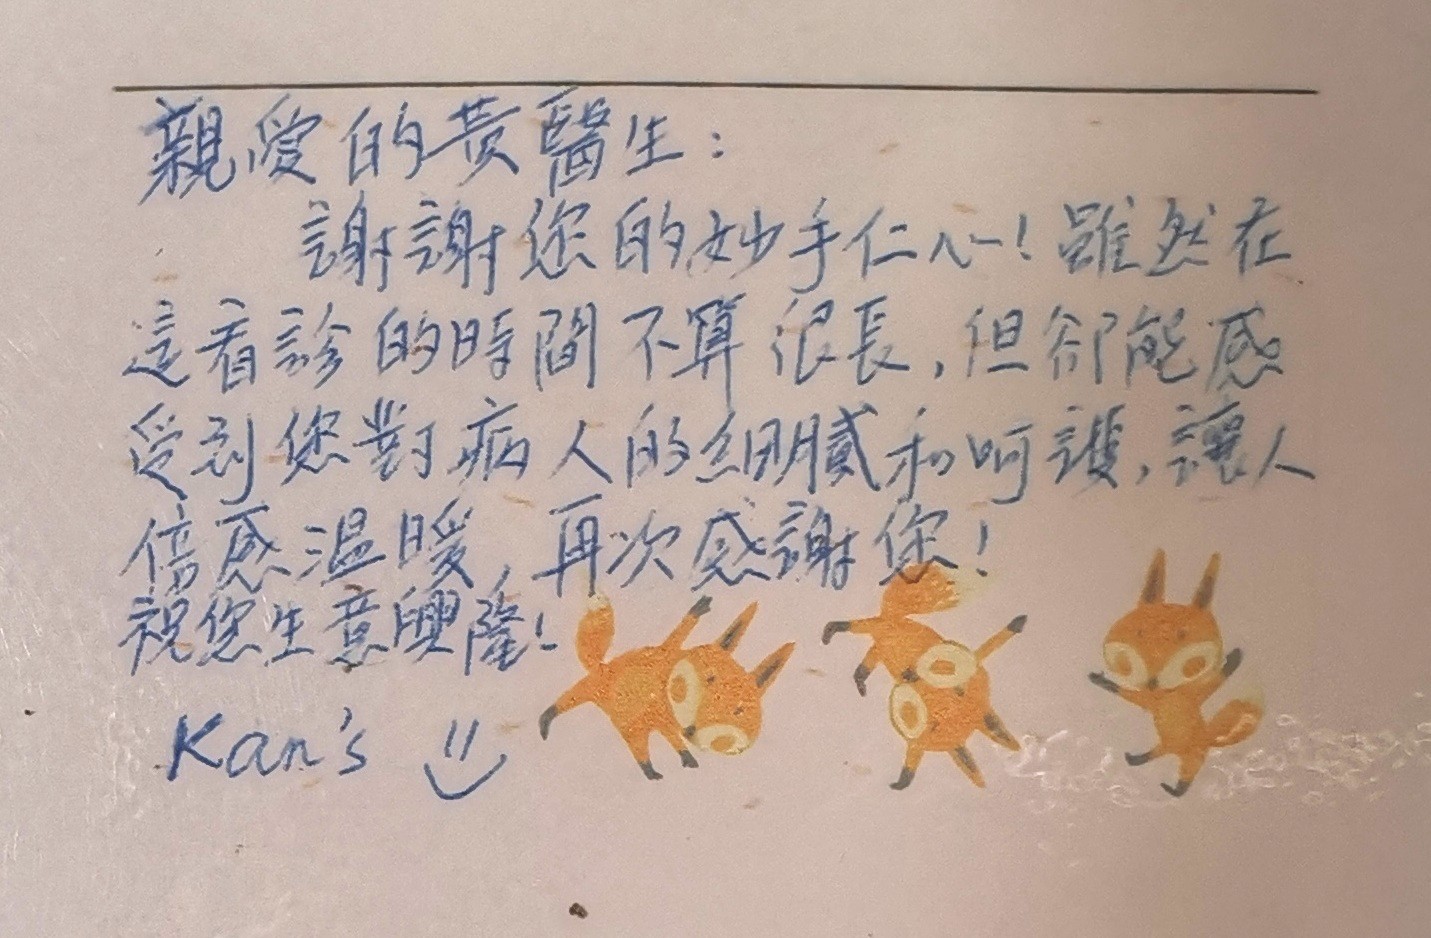 親愛的黃醫生：
謝謝您的妙手仁心！雖然在
這看診的時間不算很長，但卻能感
受到您對病人的細膩和呵護，讓人
倍感溫暖，再次感謝您！
祝您生意興隆！
Kan's